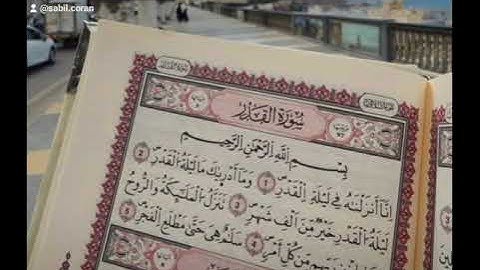 @sabil.coran
سُورَةُ القَدْرِ
بِسْمِ اللَّهِ الرَّحْمَٰنِ الرَّحِيمِ
إِنَّا أَنزَلْنَٰهُ فِى لَيْلَةِ الْقَدْرِ 1 وَمَا أَدْرَىٰكَ مَا لَيْلَةُ الْقَدْرِ 2
لَيْلَةُ الْقَدْرِ خَيْرٌ مِّنْ أَلْفِ شَهْرٍ 3 تَنَزَّلُ الْمَلَٰٓئِكَةُ وَالرُّوحُ
رَبِّهِم مِّن كُلِّ أَمْرٍ 4 سَلَٰمٌ هِىَ حَتَّىٰ مَطْلَعِ الْفَجْرِ 5